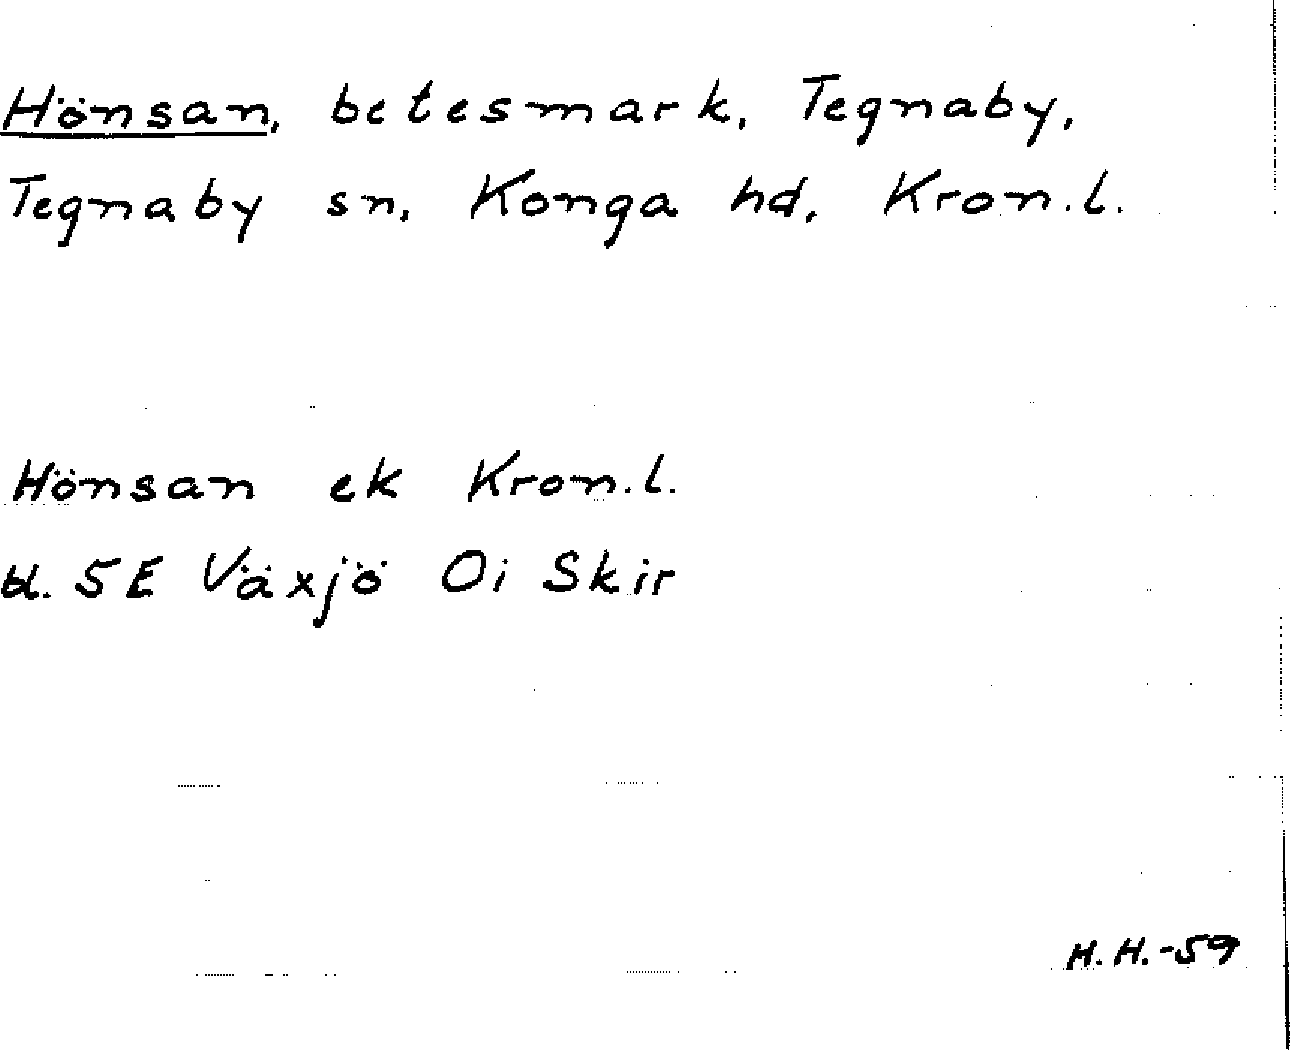 Hönsan, betesmark, Tegnaby,
Tegnaby sn, Konga hd, Kron.l.
Hönsan ek Kron.l.
bl. 5E Växjö Oi Skir
H.H.-59